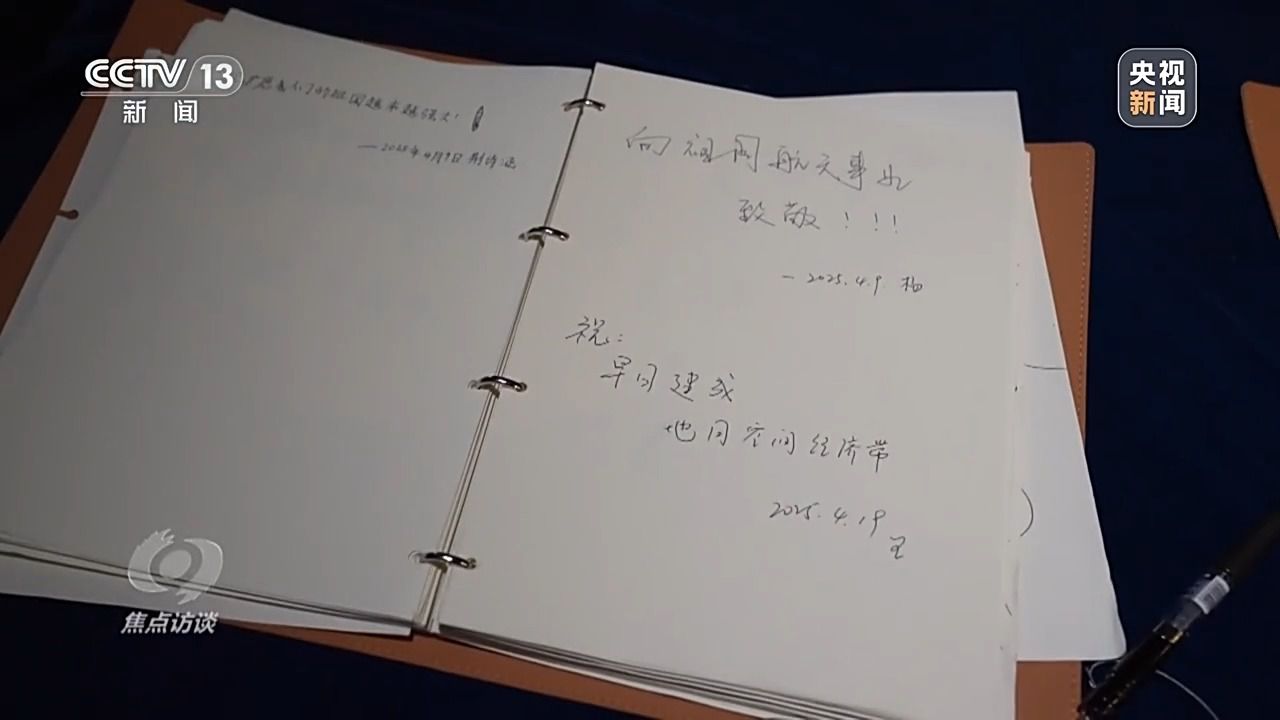 CCTV 13
新闻
央视
新闻
愿意人丁的祖国越来越强大!
—2025年4月9日
向祖国航天事业
致敬!!!
—2025.4.9 杨
祝:
早日建成
地月空间经济带
2025.4.19
王
焦点访谈